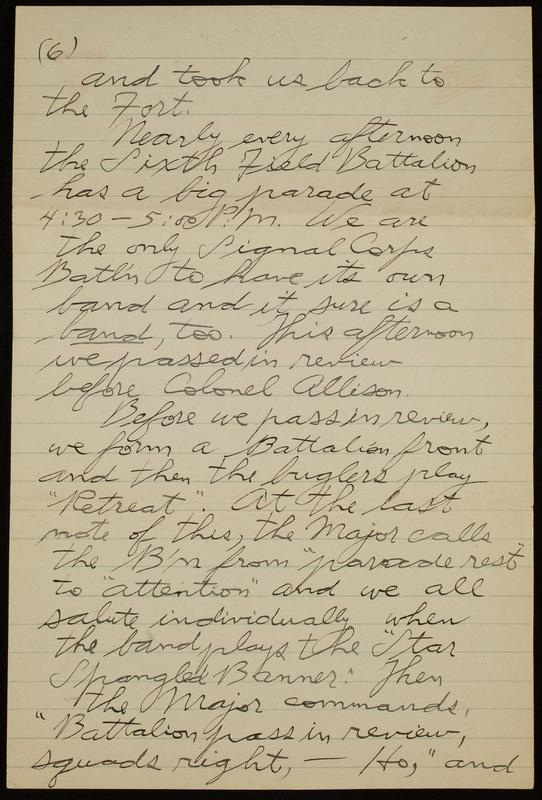 (6)
and took us back to
the Fort.
Nearly every afternoon
the Sixth Field Battalion
has a big parade at
4:30 – 5:00 P.M. We are
the only Signal Corps
Batl'n to have its own
band and it sure is a
band, too. This afternoon
we passed in review
before Colonel Allison.
Before we pass in review,
we form a Battalion front
and then the buglers play
"Retreat". At the last
note of this, the Major calls
the B'n from "parade rest"
to "attention" and we all
salute individually when
the band plays the "Star
Spangled Banner." Then
the Major commands,
"Battalion pass in review,
squads right, — Ho," and